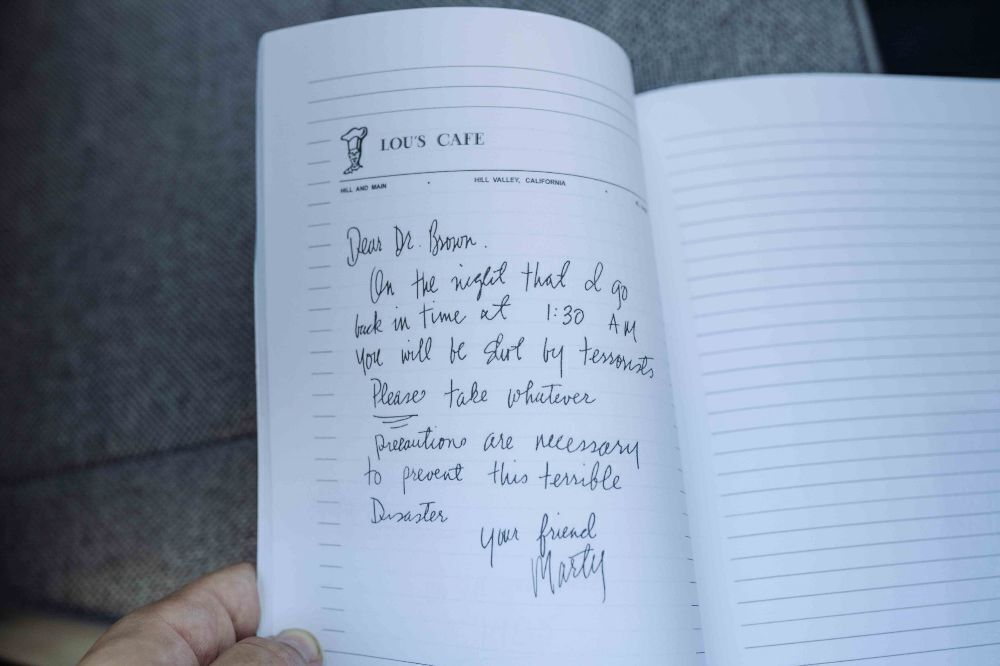 LOU'S CAFE
HILL AND MAIN HILL VALLEY, CALIFORNIA
Dear Dr. Brown.
On the night that I go
back in time at 1:30 AM
you will be shot by terrorists
Please take whatever
precautions are necessary
to prevent this terrible
Disaster
your friend
Marty